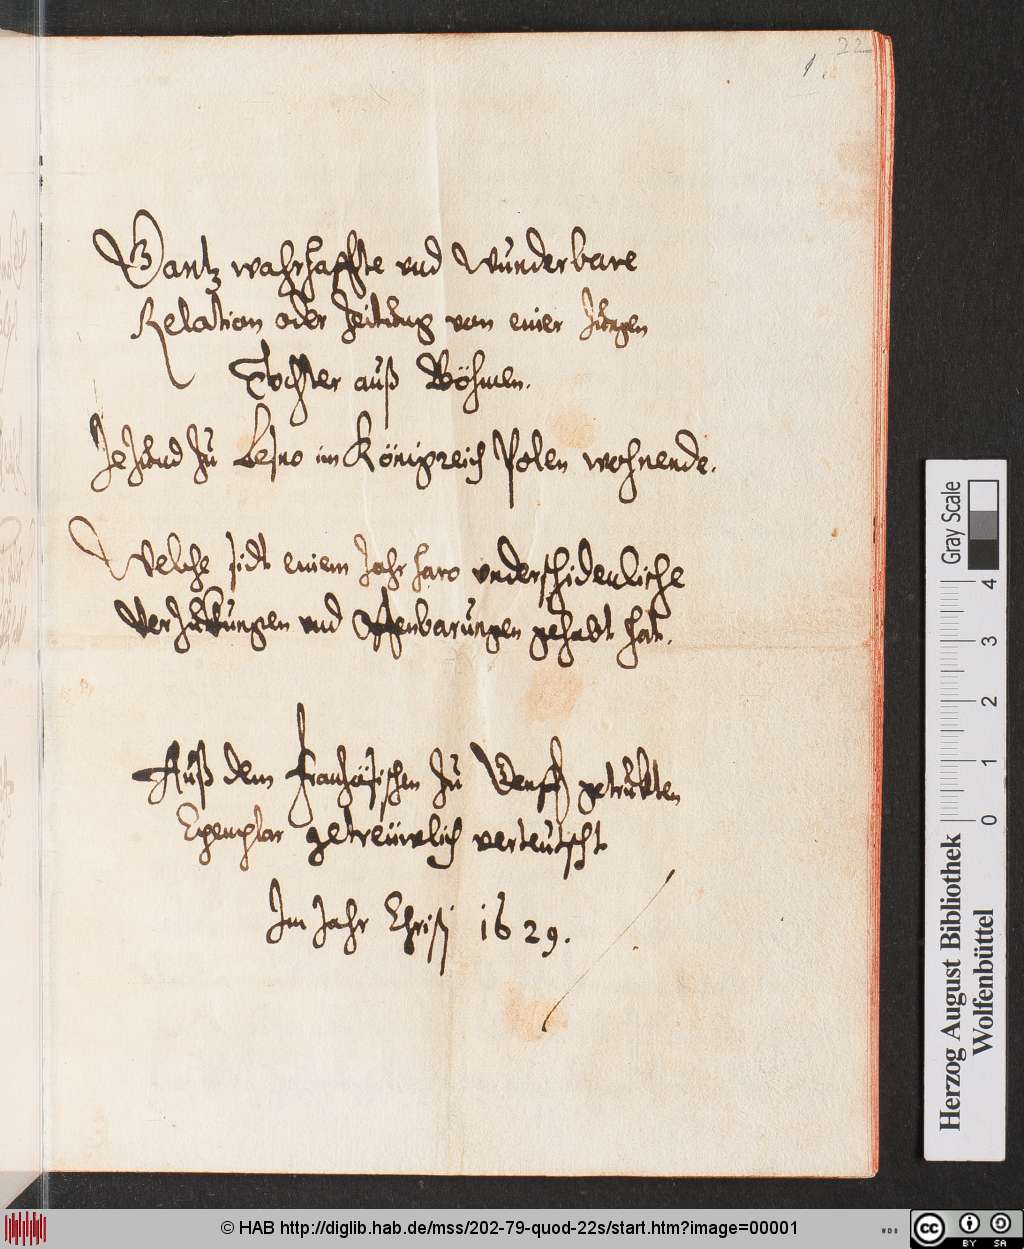 22
1.
Gantz wahrhaffte vnd Wunderbare
Relation oder Zeitung von einer Jungen
Tochter auß Böhmen.
Jezund zu Lesno im Königreich Polen wohnende.
Welche sidt einem Jahr haro vnderschidenliche
Verzukungen vnd Offenbarungen gehabt hat.
Auß dem Franzäsischen zu Genff getrukten
Exemplar getreüwlich verteutscht
Im Jahr Christi 1629.
Gray Scale
4
3
2
1
0
Herzog August Bibliothek
Wolfenbüttel
© HAB http://diglib.hab.de/mss/202-79-quod-22s/start.htm?image=00001
WDB
cc
BY SA